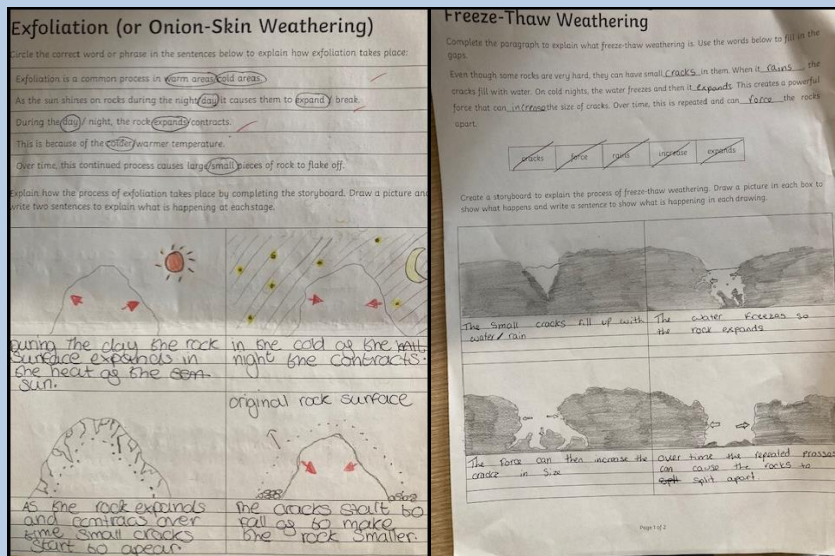 Exfoliation (or Onion-Skin Weathering)
Circle the correct word or phrase in the sentences below to explain how exfoliation takes place:
Exfoliation is a common process in warm areas/cold areas.
As the sun shines on rocks during the night/day it causes them to expand / break.
During the day / night, the rock expands/contracts.
This is because of the colder/warmer temperature.
Over time, this continued process causes large/small pieces of rock to flake off.
Explain how the process of exfoliation takes place by completing the storyboard. Draw a picture and
write two sentences to explain what is happening at each stage.
During the day the rock
surface expands in
the heat of the
sun.
in the cold of the
night the contracts.
As the rock expands
and contracs over
time small cracks
start to apear.
original rock surface
The cracks start to
fall of to make
the rock smaller.
Freeze-Thaw Weathering
Complete the paragraph to explain what freeze-thaw weathering is. Use the words below to fill in the
gaps.
Even though some rocks are very hard, they can have small cracks in them. When it rains the
cracks fill with water. On cold nights, the water freezes and then it expands. This creates a powerful
force that can increase the size of cracks. Over time, this is repeated and can force the rocks
apart.
cracks force rains increase expands
Create a storyboard to explain the process of freeze-thaw weathering. Draw a picture in each box to
show what happens and write a sentence to show what is happening in each drawing.
The small cracks fill up with
water / rain
The water freezes so
the rock expands
The force can then increase the
cracks in size
Over time the repeated
can cause the rocks to
split apart.
Page 1 of 2